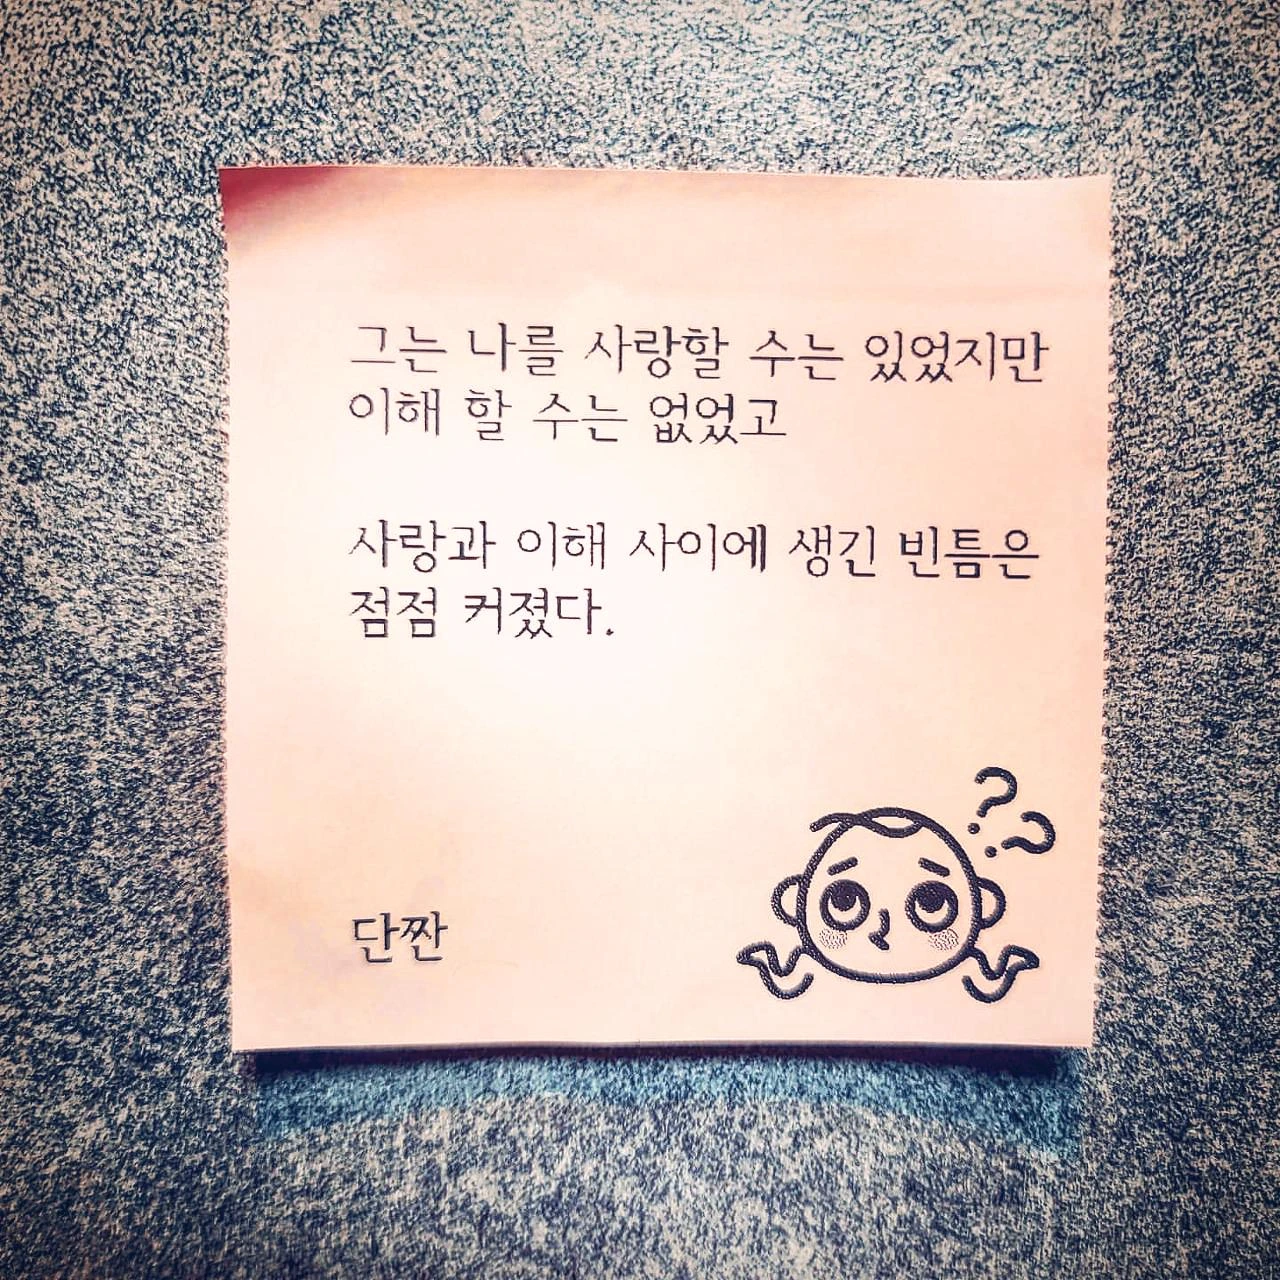 그는 나를 사랑할 수는 있었지만
이해 할 수는 없었고
사랑과 이해 사이에 생긴 빈틈은
점점 커졌다.
??
단짠